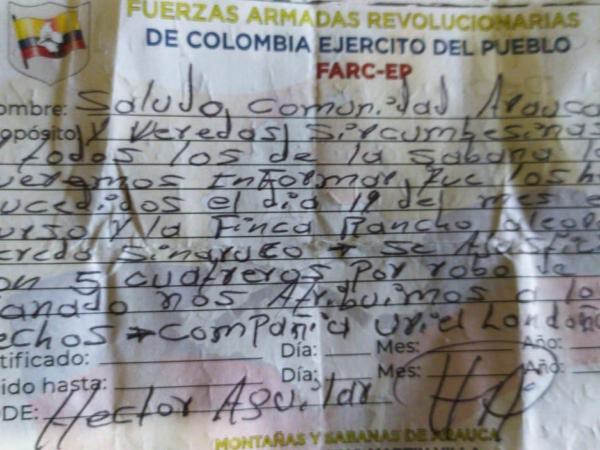 FUERZAS ARMADAS REVOLUCIONARIAS
DE COLOMBIA EJERCITO DEL PUEBLO
FARC-EP
ombre: Saludo, Comunidad Arauca
opósito: Y Veredas Sircumbesinas
y todos los de la Sabana la
ueremos Informar que los h
ucedidos el dia 19 del mes e
urso y la Finca Rancho
ereda Sinaruco → Se
on 5 cuatreros por robo de
anado nos Atribuimos a lo
echos → Compañia Uriel Londoñ
tificado: Día: Mes: Año:
lido hasta: Día: Mes: Año:
DE: Hector Aguilar HA
MONTAÑAS Y SABANAS DE ARAUCA